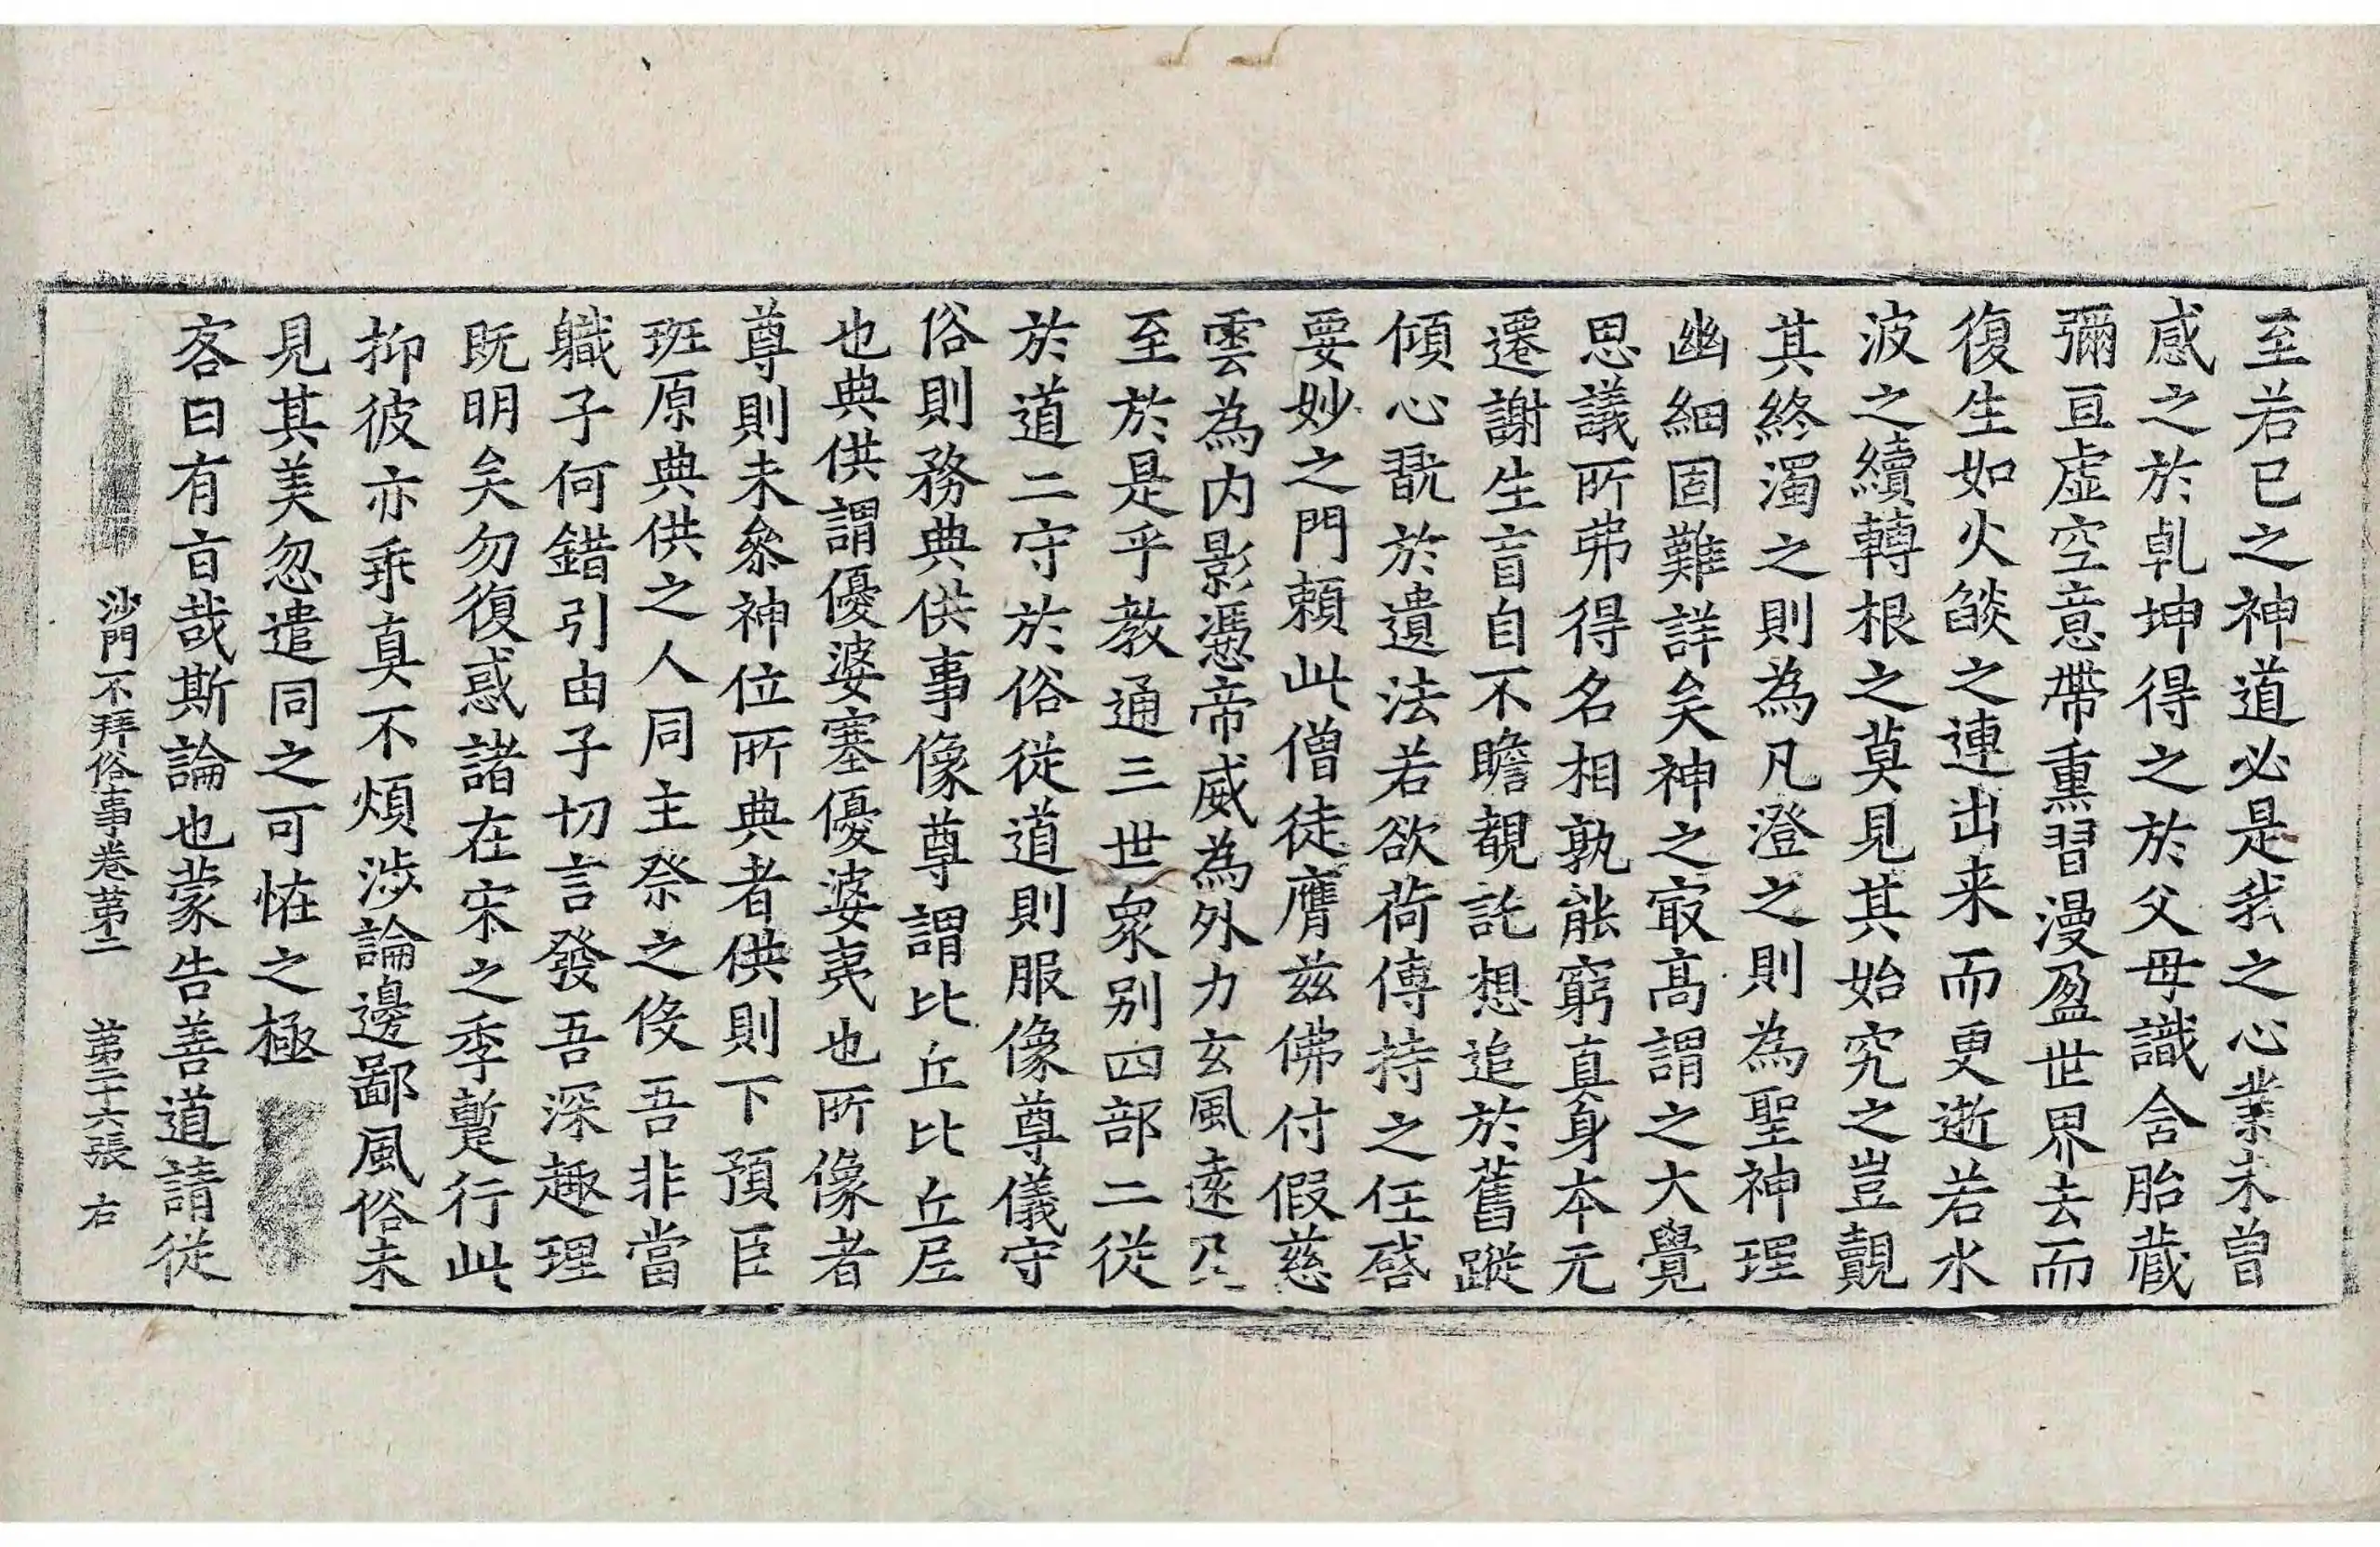 至若已之神道必是我之心業未曾
感之於乹坤得之於父母識含胎藏
彌亘虛空意帶熏習漫盈世界去而
復生如火燄之連出来而更逝若水
波之續轉根之莫見其始究之豈覿
其終濁之則為凡澄之則為聖神理
幽細固難詳矣神之㝡高謂之大覺
思議所弗得名相孰能窮真身本无
遷謝生盲自不瞻覩託想追於舊蹤
傾心翫於遺法若欲荷傳持之任啓
要妙之門頼此僧徒膺兹佛付假慈
雲為内影憑帝威為外力玄風遠及
至於是乎教通三世衆别四部二從
於道二守於俗從道則服像尊儀守
俗則務典供事像尊謂比丘比丘尼
也典供謂優婆塞優婆夷也所像者
尊則未叅神位所典者供則下預臣
班原典供之人同主祭之伇吾非當
軄子何錯引由子切言發吾深趣理
既明矣勿復惑諸在宋之季蹔行此
抑彼亦乖真不煩涉論邊鄙風俗未
見其美忽遣同之可恠之極
客曰有旨哉斯論也蒙告善道請從
沙門不拜俗事卷苐二 苐二十六張 右